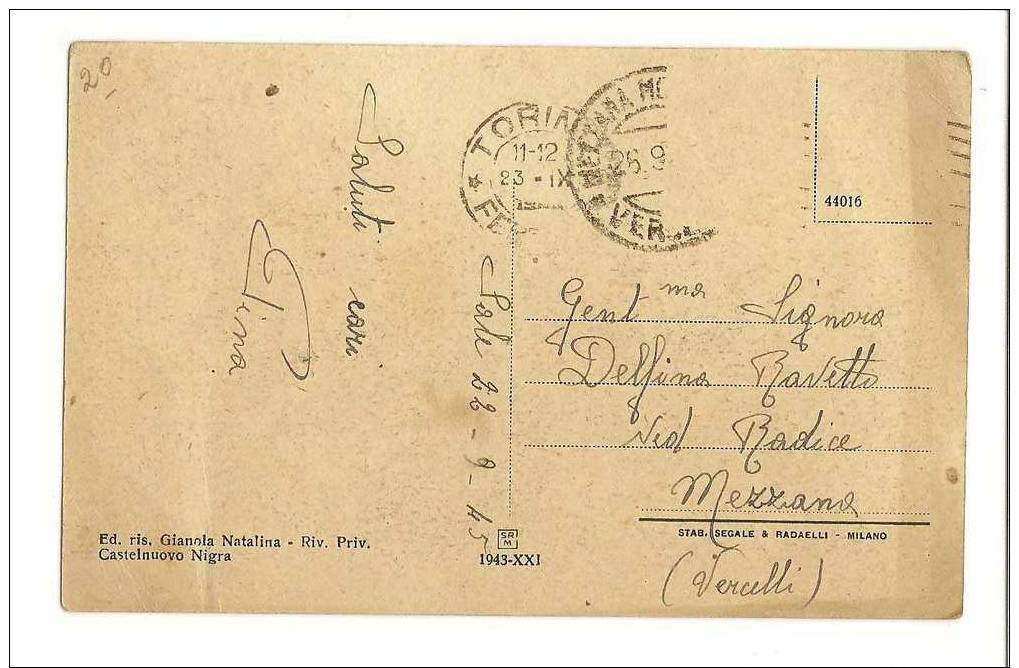 20
Saluti cari
Pina
Sale 22-9-45
TORIN
11-12
23 - IX
FE
MEZZANA MO
26.9
VER
44016
Gent ma Signora
Delfina Ravetto
Ved Radice
Mezzana
(Vercelli)
Ed. ris. Gianola Natalina - Riv. Priv.
Castelnuovo Nigra
SR
M
1943-XXI
STAB. SEGALE & RADAELLI - MILANO